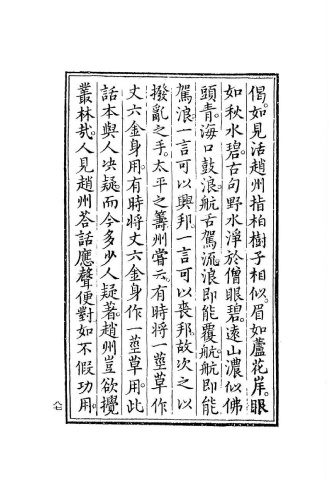 偈。如見活趙州指柏樹子相似。眉如蘆花岸。眼
如秋水碧。古句野水淨於僧眼碧。遠山濃似佛
頭青。海口鼓浪。航舌駕流。浪即能覆航。航即能
駕浪。一言可以興邦。一言可以喪邦。故次之以
撥亂之手。太平之籌。州嘗云。有時將一莖草作
丈六金身用。有時將丈六金身作一莖草用。此
話本與人決疑。而今多少人疑著。趙州豈欲攪
叢林哉。人見趙州荅話應聲便對。如不假功用。
八七